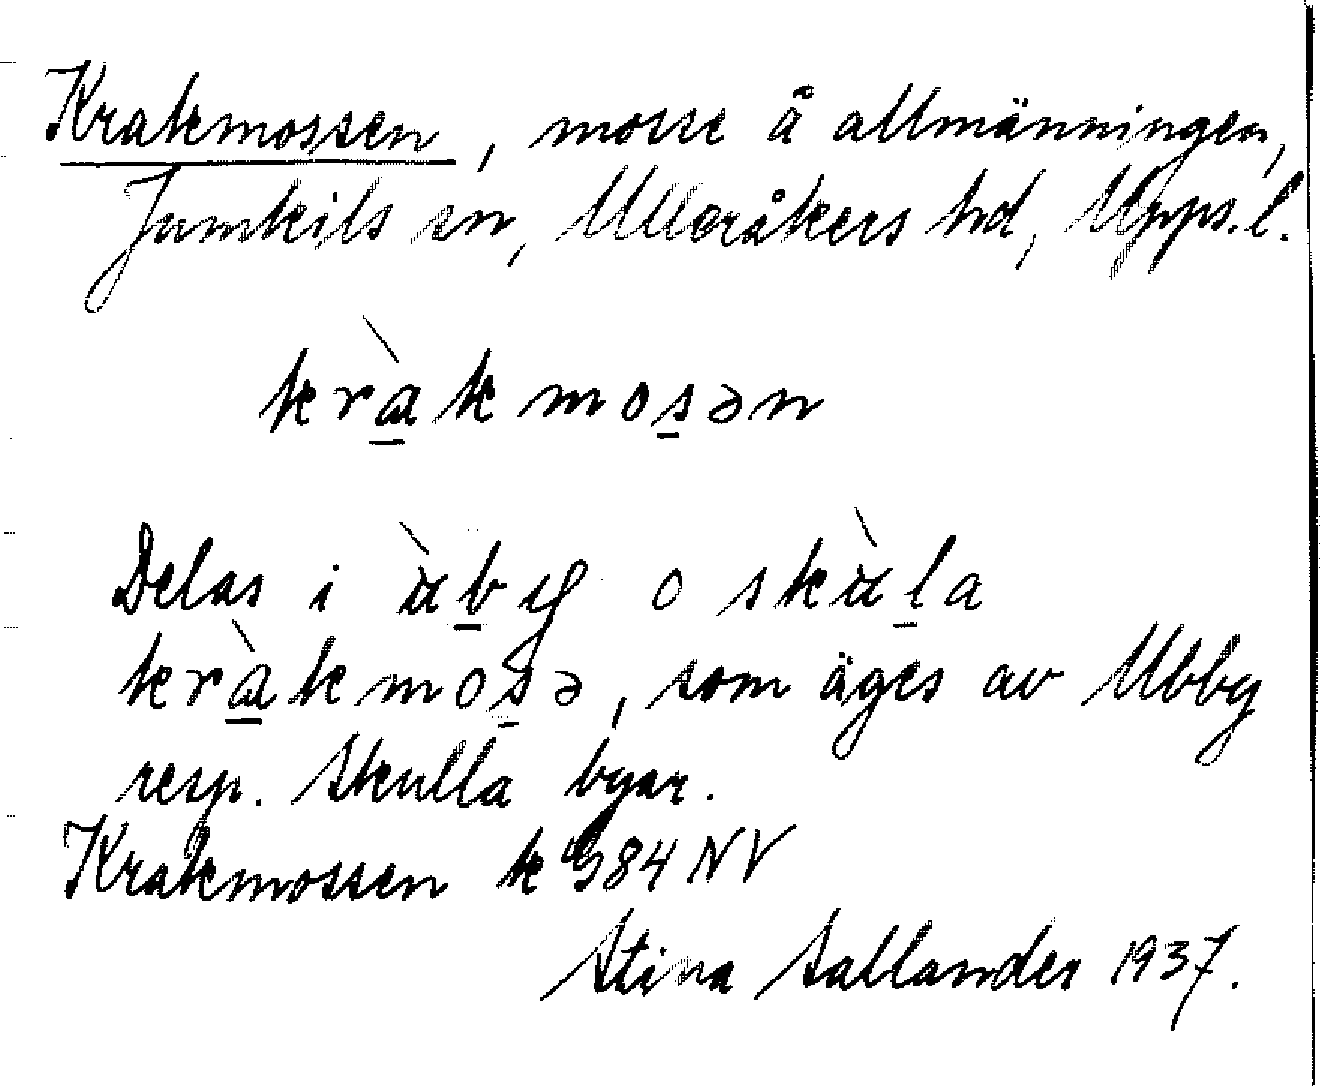 Krakmossen, mosse å allmänningen,
Jumkils sn, Ulleråkers hd, Upps. l.
kràkmosən
Delas i àby o skàla
kràkmosə, som äges av Ubby
resp. Skulla byar.
Krakmossen k 984 NV
Stina Sallander 1937.